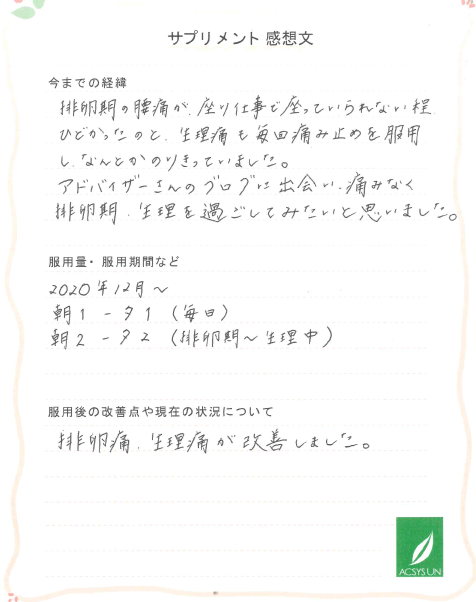 サプリメント 感想文
今までの経緯
排卵期の腰痛が、座り仕事で座っていられない程
ひどかったのと、生理痛も毎回痛み止めを服用
し、なんとかのりきっていました。
アドバイザーさんのブログに出会い、痛みなく
排卵期、生理を過ごしてみたいと思いました。
服用量・服用期間など
2020年12月～
朝1 - 夕1 (毎日)
朝2 - 夕2 (排卵期～生理中)
服用後の改善点や現在の状況について
排卵痛、生理痛が改善しました。
ACSYSUN